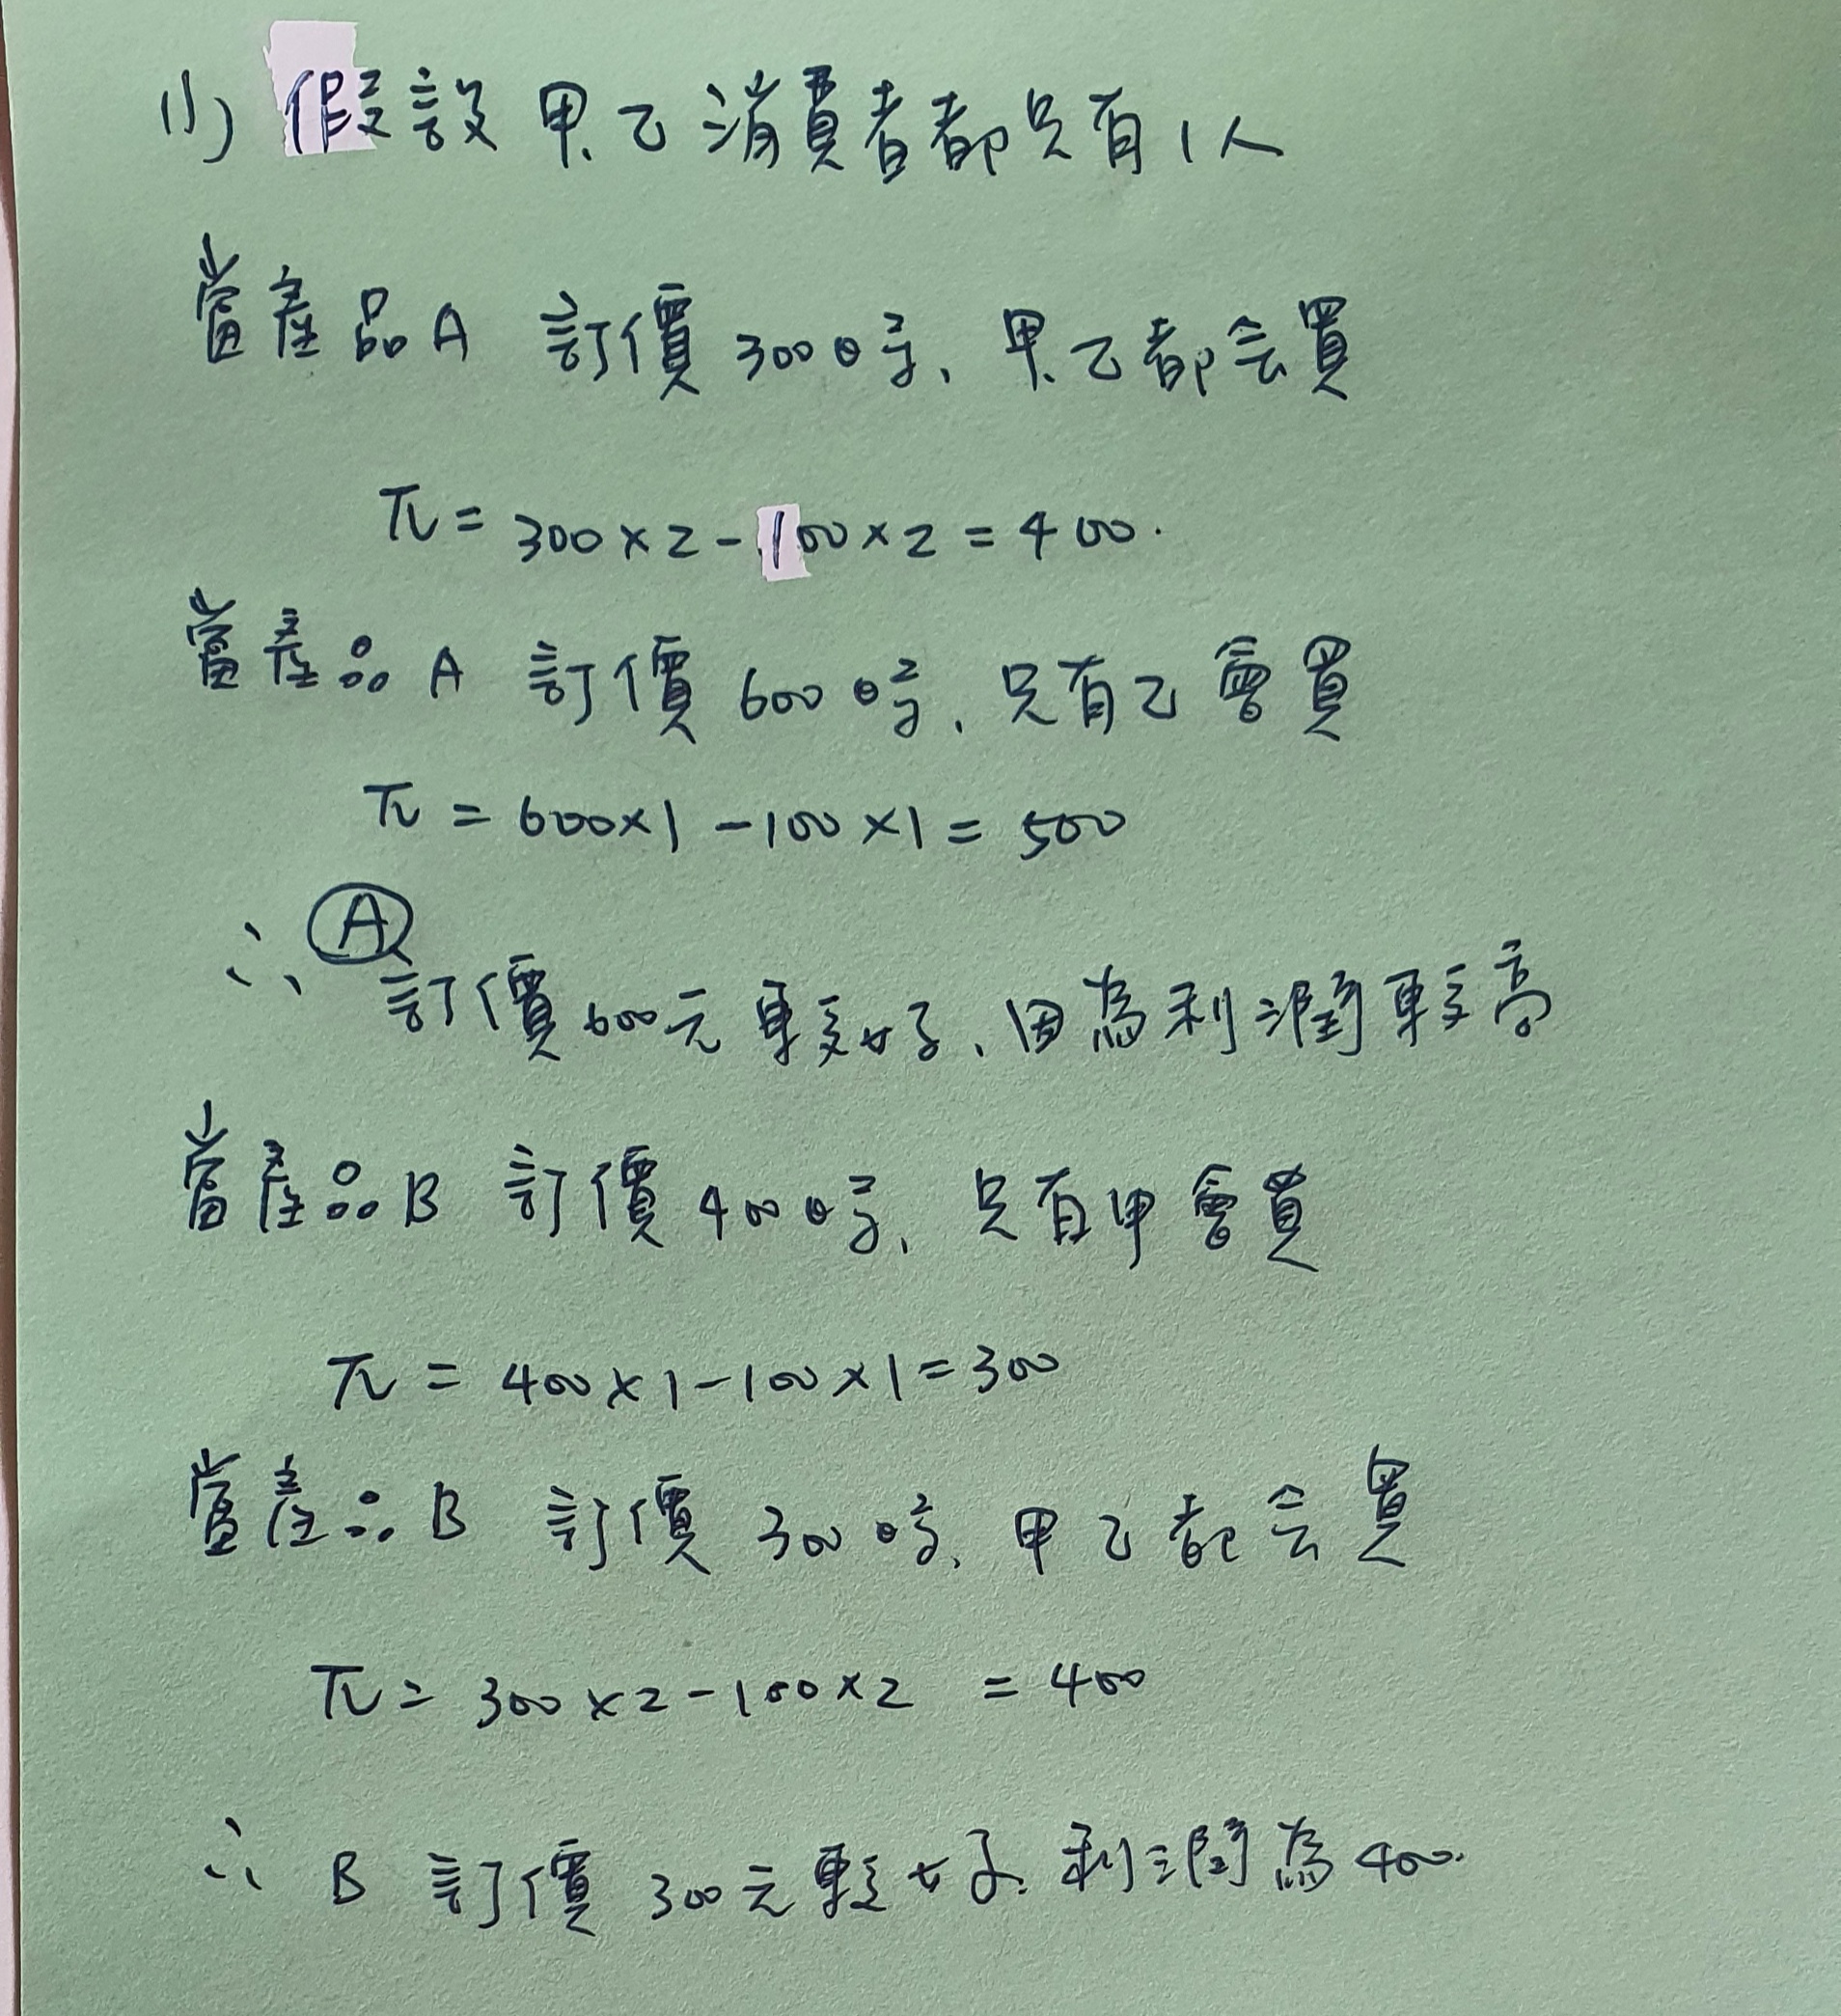 (1) 假設甲、乙消費者都只有1人
當產品A 訂價300時、甲、乙都会買
π = 300×2-100×2=400.
當產品A 訂價600時、只有乙會買
π = 600×1-100×1=500
∴ A 訂價600元較好、因為利潤較高
當產品B 訂價400時、只有甲會買
π = 400×1-100×1=300
當產品B 訂價300時、甲乙都会買
π = 300×2-100×2 = 400
∴ B 訂價300元較好. 利潤為400.